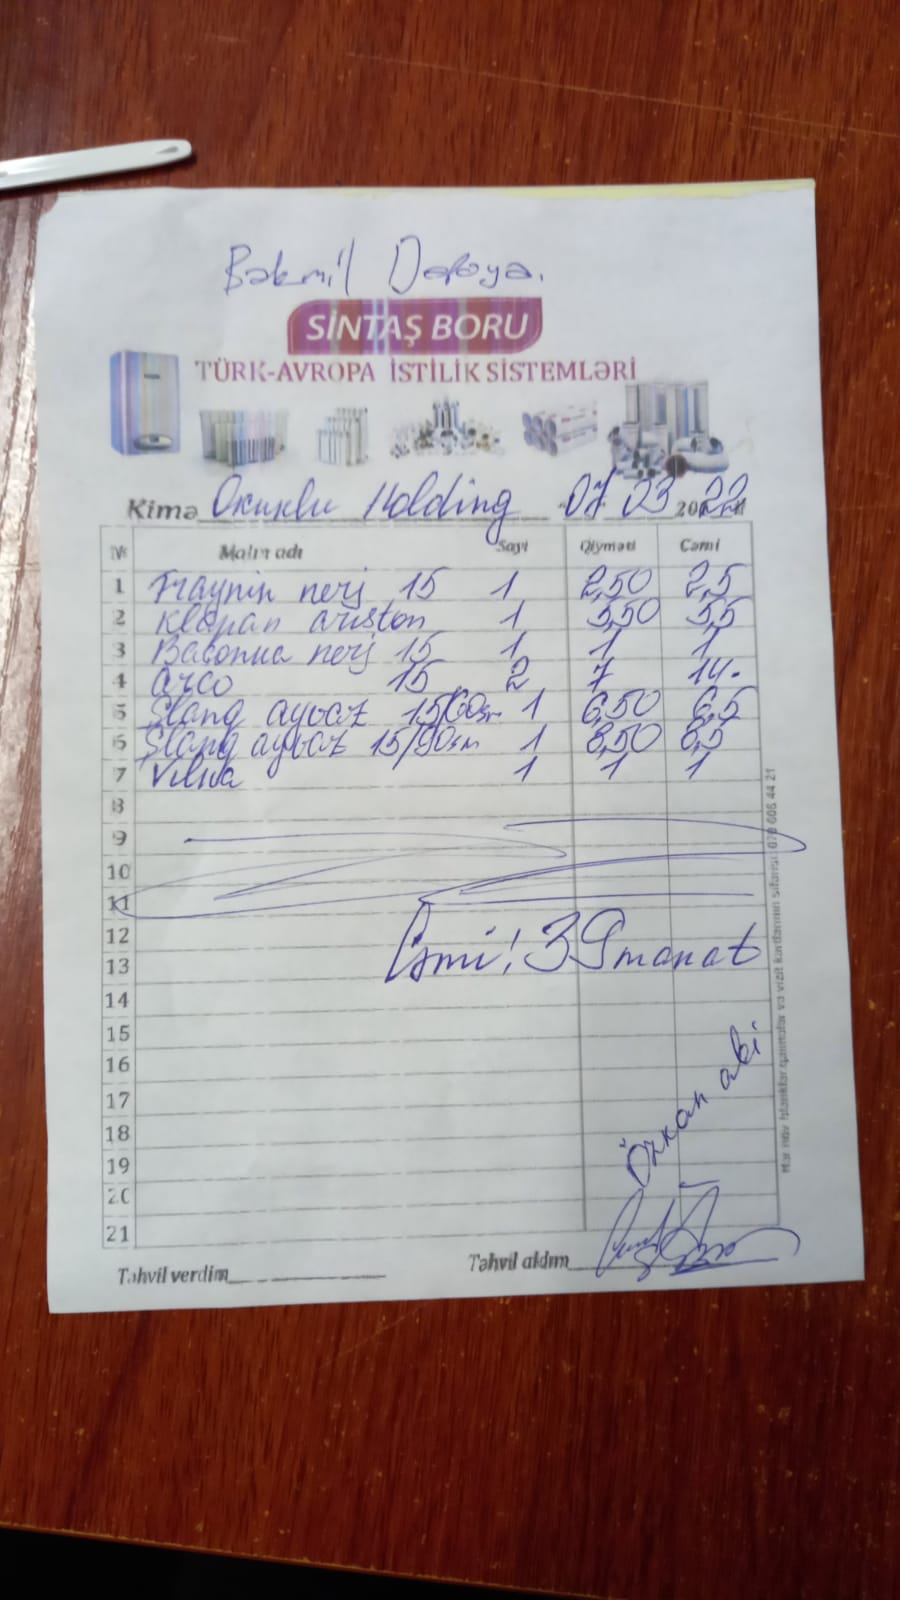 Bəkmil Dəfəyə.
SİNTAŞ BORU
TÜRK-AVROPA İSTİLİK SİSTEMLƏRİ
Kimə Okuklu Holding 07 03 2022
№ Malın adı Sayı Qiyməti Cəmi
1 nerj 15 1 2,50 2,5
2 Klapan ariston 1 5,50 5,5
3 nerj 15 1 1 1
4 Arco 15 2 7 14.
5 Şlang ayvaz 15/60sm 1 6,50 6,5
6 Şlang ayvaz 15/90sm 1 8,50 8,5
7 Vilka 1 1 1
8
9
10
11
12
Cəmi! 39 manat
13
14
15
16
17
18
Özkan abi
19
20
21
Təhvil verdim Təhvil aldım
Hər növ blanklar qaimələr və vizit kartlarının sifarişi 070 606 44 21